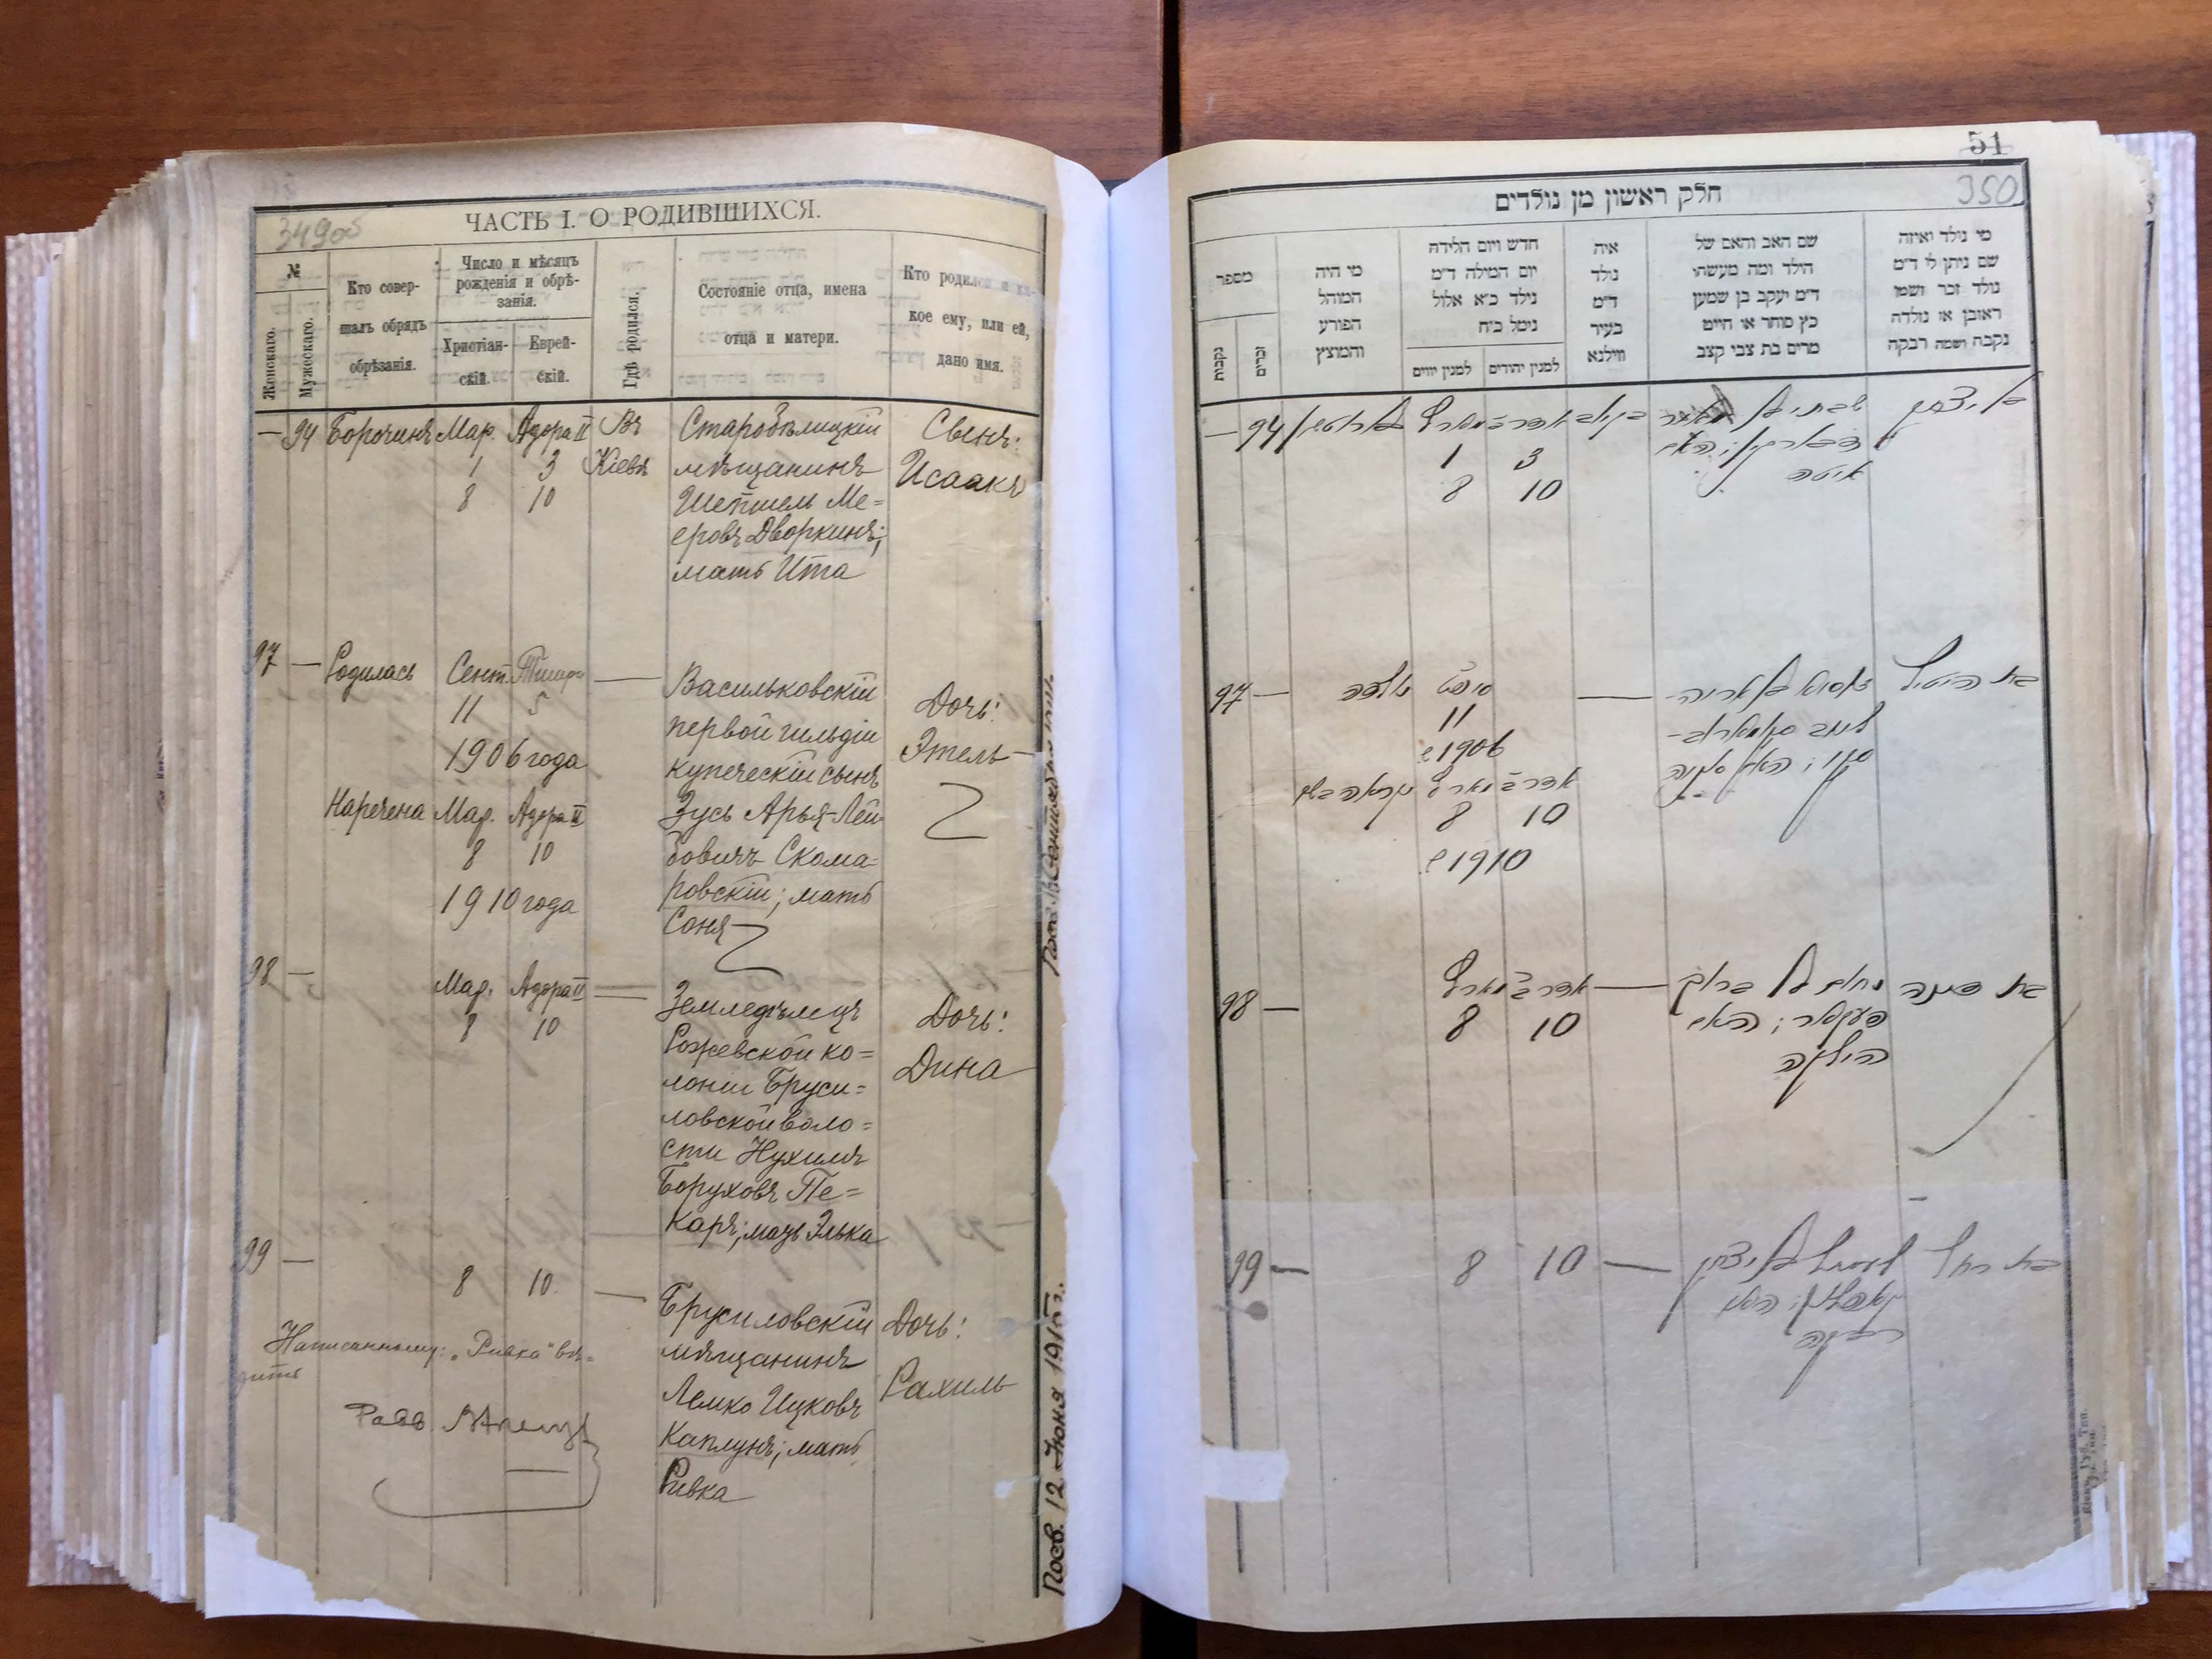 349об
ЧАСТЬ I. О РОДИВШИХСЯ.
№
Женскаго.
Мужескаго.
Кто совер-
шалъ обрядъ
обрѣзанія.
Число и мѣсяцъ
рожденія и обрѣ-
занія.
Христіан-
скій.
Еврей-
скій.
Гдѣ родился.
Состояніе отца, имена
отца и матери.
Кто родился и ка-
кое ему, или ей,
дано имя.
— 94 Борочинъ Мар. Адора II Въ
1 3 Кіевѣ
8 10
Старобѣлицкій
мѣщанинъ
Шепшель Ме=
еровъ Дворкинъ;
мать Ита
Сынъ:
Исаакъ
97 — Родилась Сент. Тишри —
11 5
1906 года
Наречена Мар. Адора II
8 10
1910 года
Васильковскій
первой гильдіи
купеческій сынъ
Зусь Арья-Лей-
бовичъ Скома-
ровскій; мать
Соня
Дочь:
Этель
98 — Мар. Адора II
8 10
Земледѣлецъ
Рожевской ко=
лоніи Бруси=
ловской воло=
сти Нухимъ
Боруховъ Пе=
каръ; мать Элька
Дочь:
Дина
99 —
8 10 —
Брусиловскій
мѣщанинъ
Лемко Ицковъ
Каплунъ; мать
Ривка
Дочь:
Рахиль
Написанному: „Ривка" вѣ=
рить
12 Іюня 1915 г.
51
350
חלק ראשון מן נולדים
מספר
נקבות
זכרים
מי היה
המוהל
הפורע
והמוצץ
חדש ויום הלידה
יום המילה ד״מ
נולד כ״א אלול
נימל כ״ח
למנין יווים
למנין יהודים
איה
נולד
ד״מ
בעיר
ווילנא
שם האב והאם של
הילד ומה מעשהו
ד״מ יעקב בן שמעון
כץ סוחר או חייט
מרים בת צבי קצב
מי נולד ואיזה
שם ניתן לו ד״מ
נולד זכר ושמו
ראובן או נולדה
נקבה ושמה רבקה
— 94
1 3
8 10
איטה
בן יצחק
97 — נולדה
11
1906
אדר ב
8 10
1910
98 —
8 10
בת דינה
99 — 8 10 —
רבקה
בת רחל